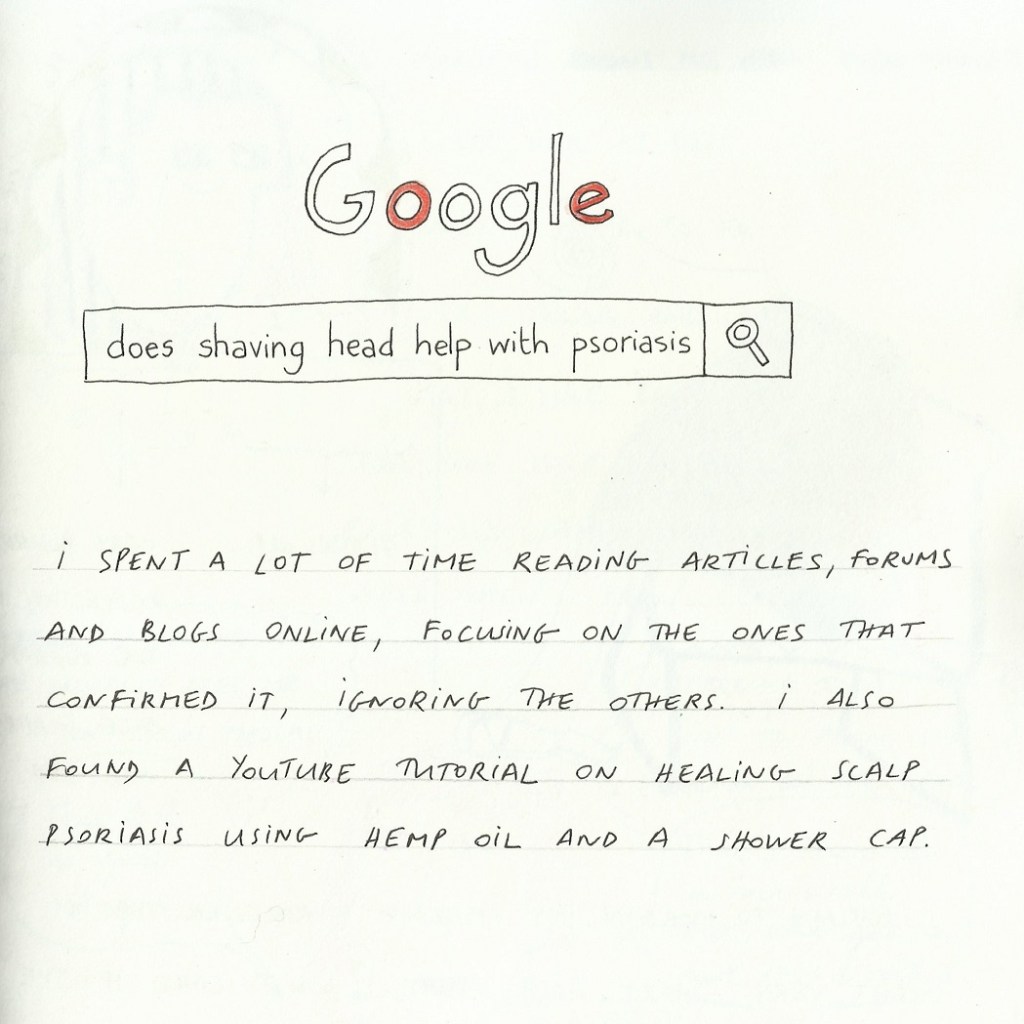 Google
does shaving head help with psoriasis
i SPENT A LOT OF TiME READiNG ARTiCLES, FORUMS
AND BLOGS ONLiNE, FOCUSiNG ON THE ONES THAT
CONFiRMED iT, iGNORiNG THE OTHERS. i ALSO
FOUND A YOUTUBE TUTORiAL ON HEALiNG SCALP
PSORiASiS USiNG HEMP OiL AND A SHOWER CAP.